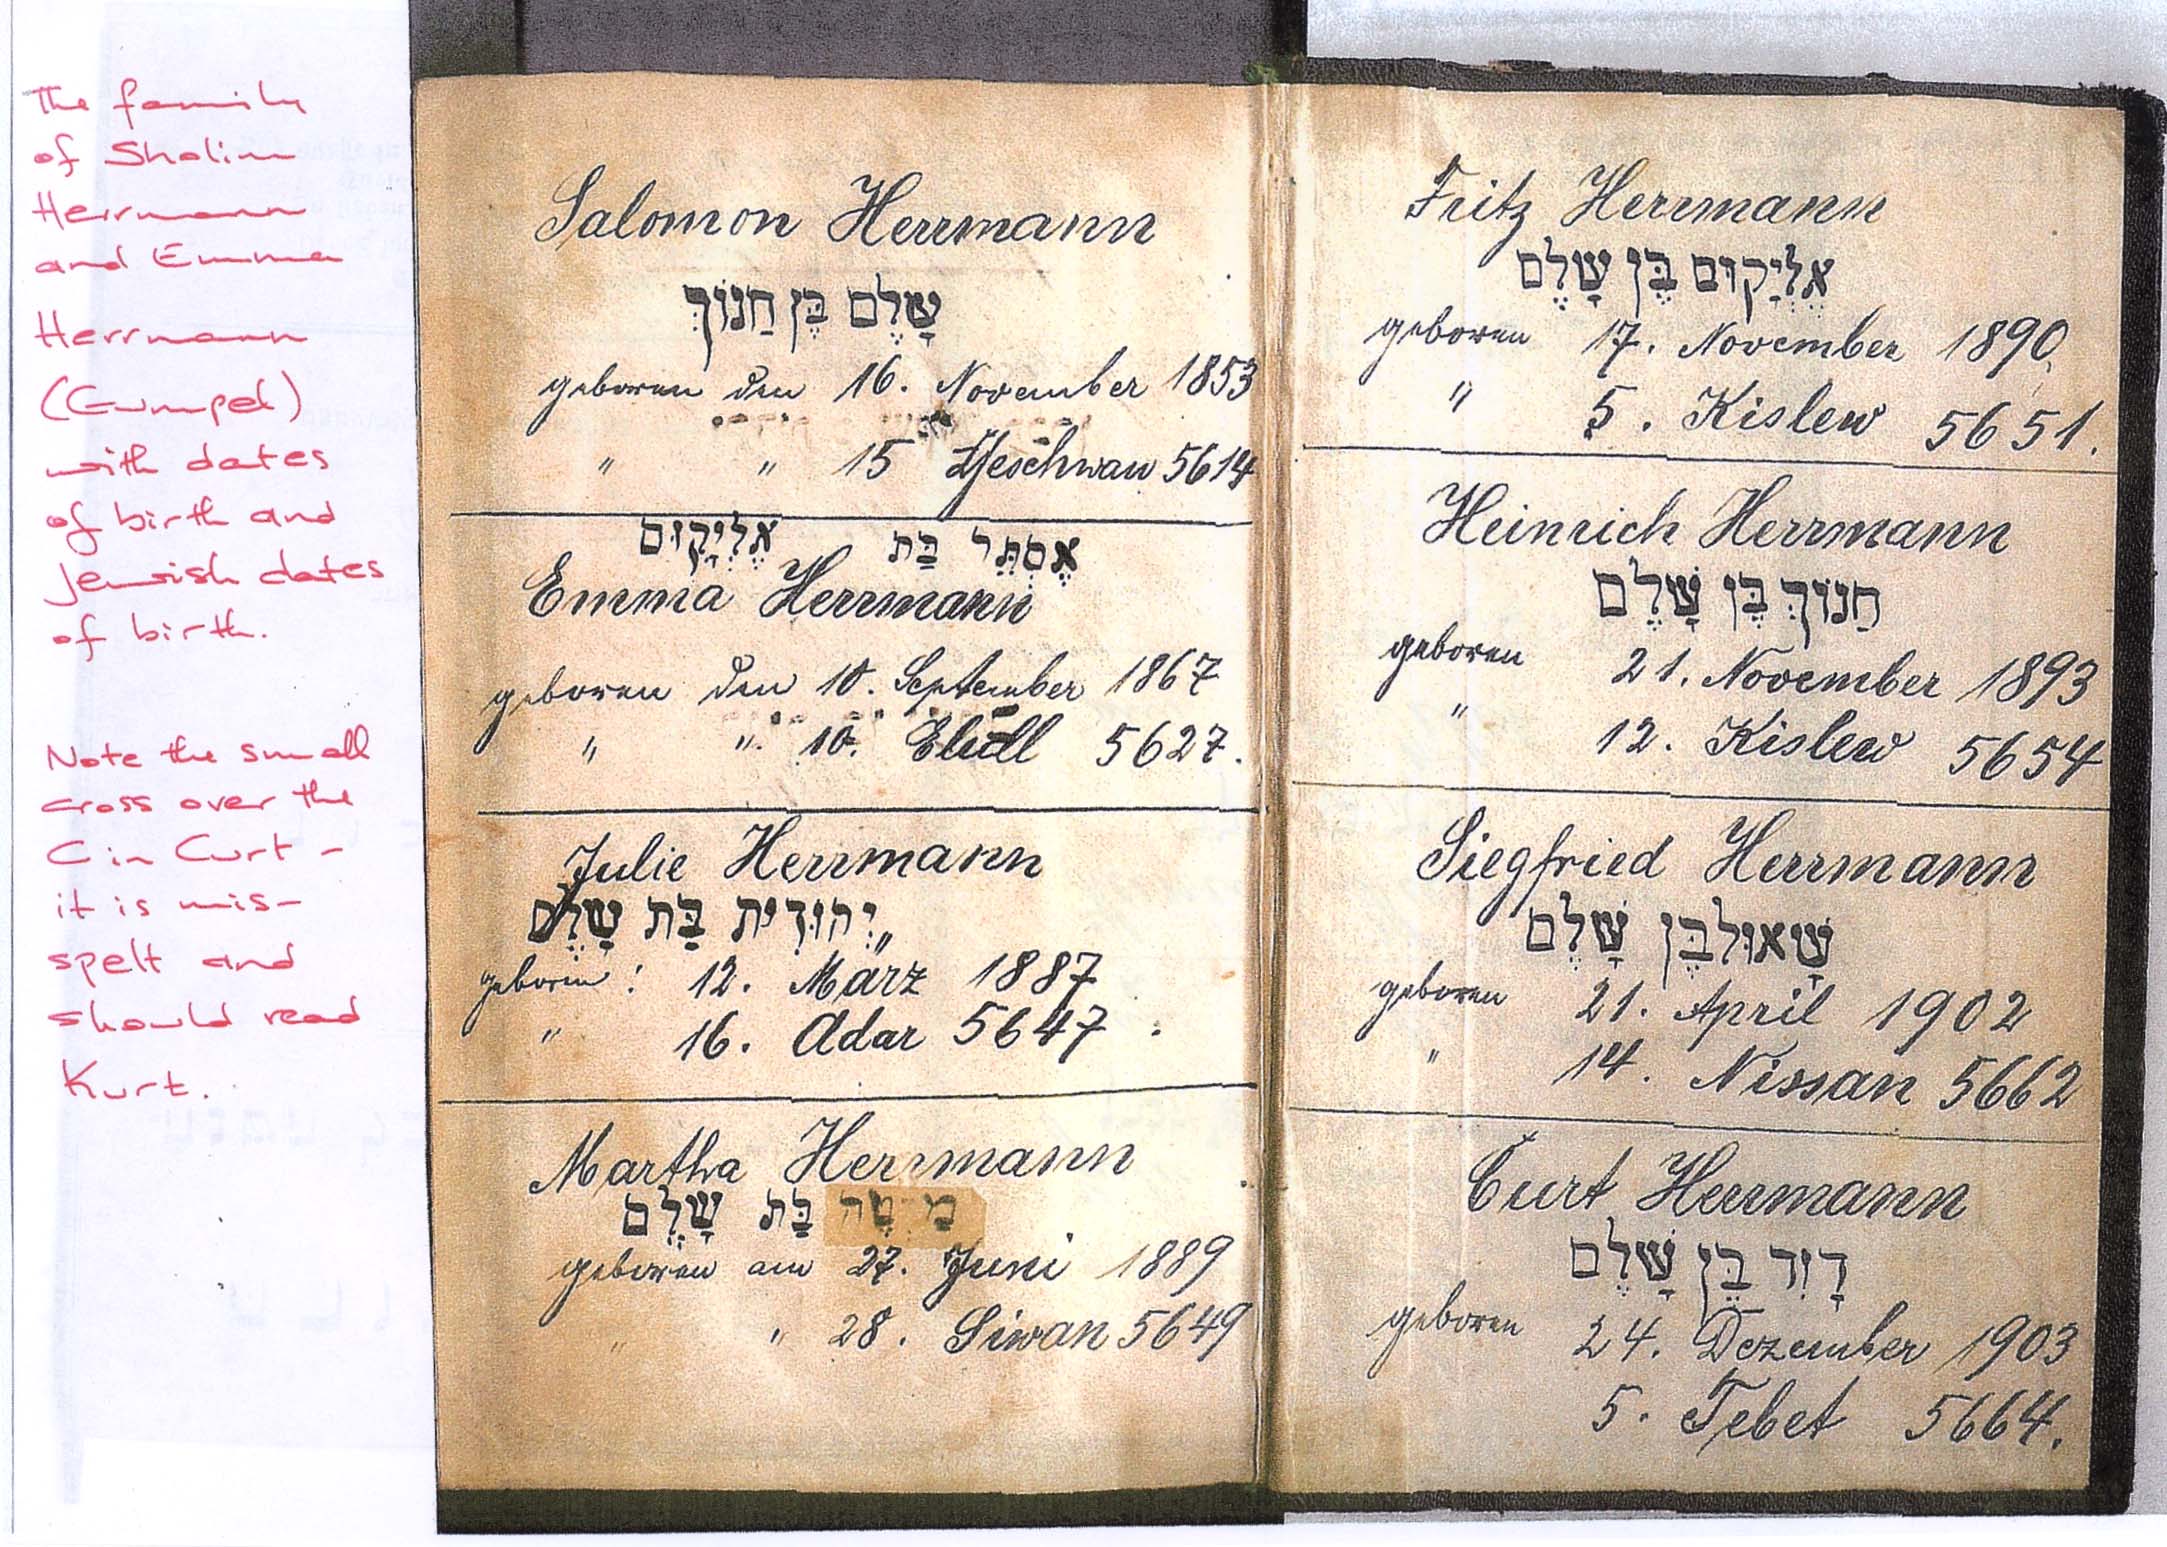 The family
of Sholim
Herrmann
and Emma
Herrmann
(Gumpel)
with dates
of birth and
Jewish dates
of birth.
Note the small
cross over the
C in Curt -
it is mis-
spelt and
should read
Kurt.
Salomon Herrmann
שָׁלֵם בֶּן חַנוֹךְ
geboren den 16. November 1853
" " 15 Cheschwan 5614
אֶסְתֵּר בַּת אֶלְיָקוּם
Emma Herrmann
geboren den 10. September 1867
" " 10. Elull 5627.
Julie Herrmann
יְהוּדִית בַּת שָׁלֵם
geboren: 12. März 1887
" 16. Adar 5647.
Martha Herrmann
בַּת שָׁלֵם
geboren am 27. Juni 1889
" " 28. Siwan 5649
Fritz Herrmann
אֶלְיָקוּם בֶּן שָׁלֵם
geboren 17. November 1890
" 5. Kislew 5651.
Heinrich Herrmann
חַנוֹךְ בֶּן שָׁלֵם
geboren 21. November 1893
" 12. Kislew 5654
Siegfried Herrmann
שָׁאוּל בֶּן שָׁלֵם
geboren 21. April 1902
" 14. Nissan 5662
Curt Herrmann
דָוִד בֶּן שָׁלֵם
geboren 24. Dezember 1903
5. Tebet 5664.